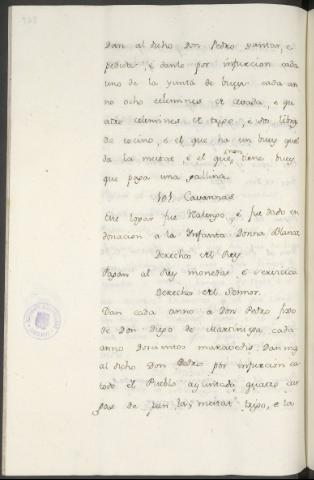 Dan al dicho Don Pedro yantar, e
pedido, e danlo por infurcion cada
uno de la yunta de buey cada an
no ocho celemines de cevada, e qu
atro celemines de trigo, e dos libras
de tocino, e el que ha un buey que
da la meitat, e el que non tiene buey,
que paga una gallina.
Cavannas
Este logar fue Realengo, e fue dado en
donacion a la Infanta Donna Blanca
Derechos del Rey
Pagan al Rey monedas e servicios
Derechos del Sennor.
Dan cada anno a Don Pedro fijo
de Don Diego de Marciniega cada
anno Docientos maravedis: Dan mas
al dicho Don Pedro por infurcion ca
todo el Pueblo ayuntado, quatro car
gas de pan la meitat trigo, e la